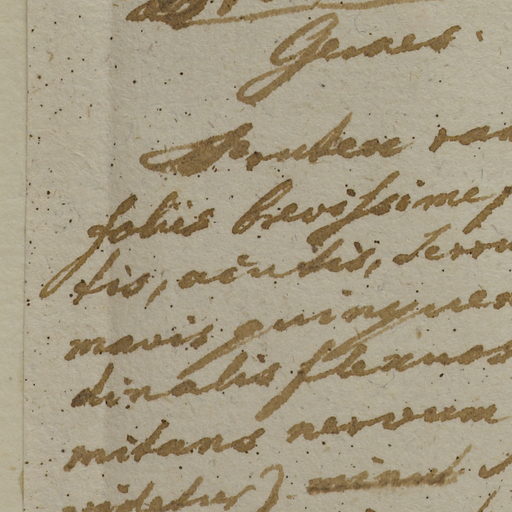 Genaes.
Frutex ra
foliis brevissime p
tis, acutis, serru
mavis quinquen
dinalis flexuos
mitans nervum
videtur) minut